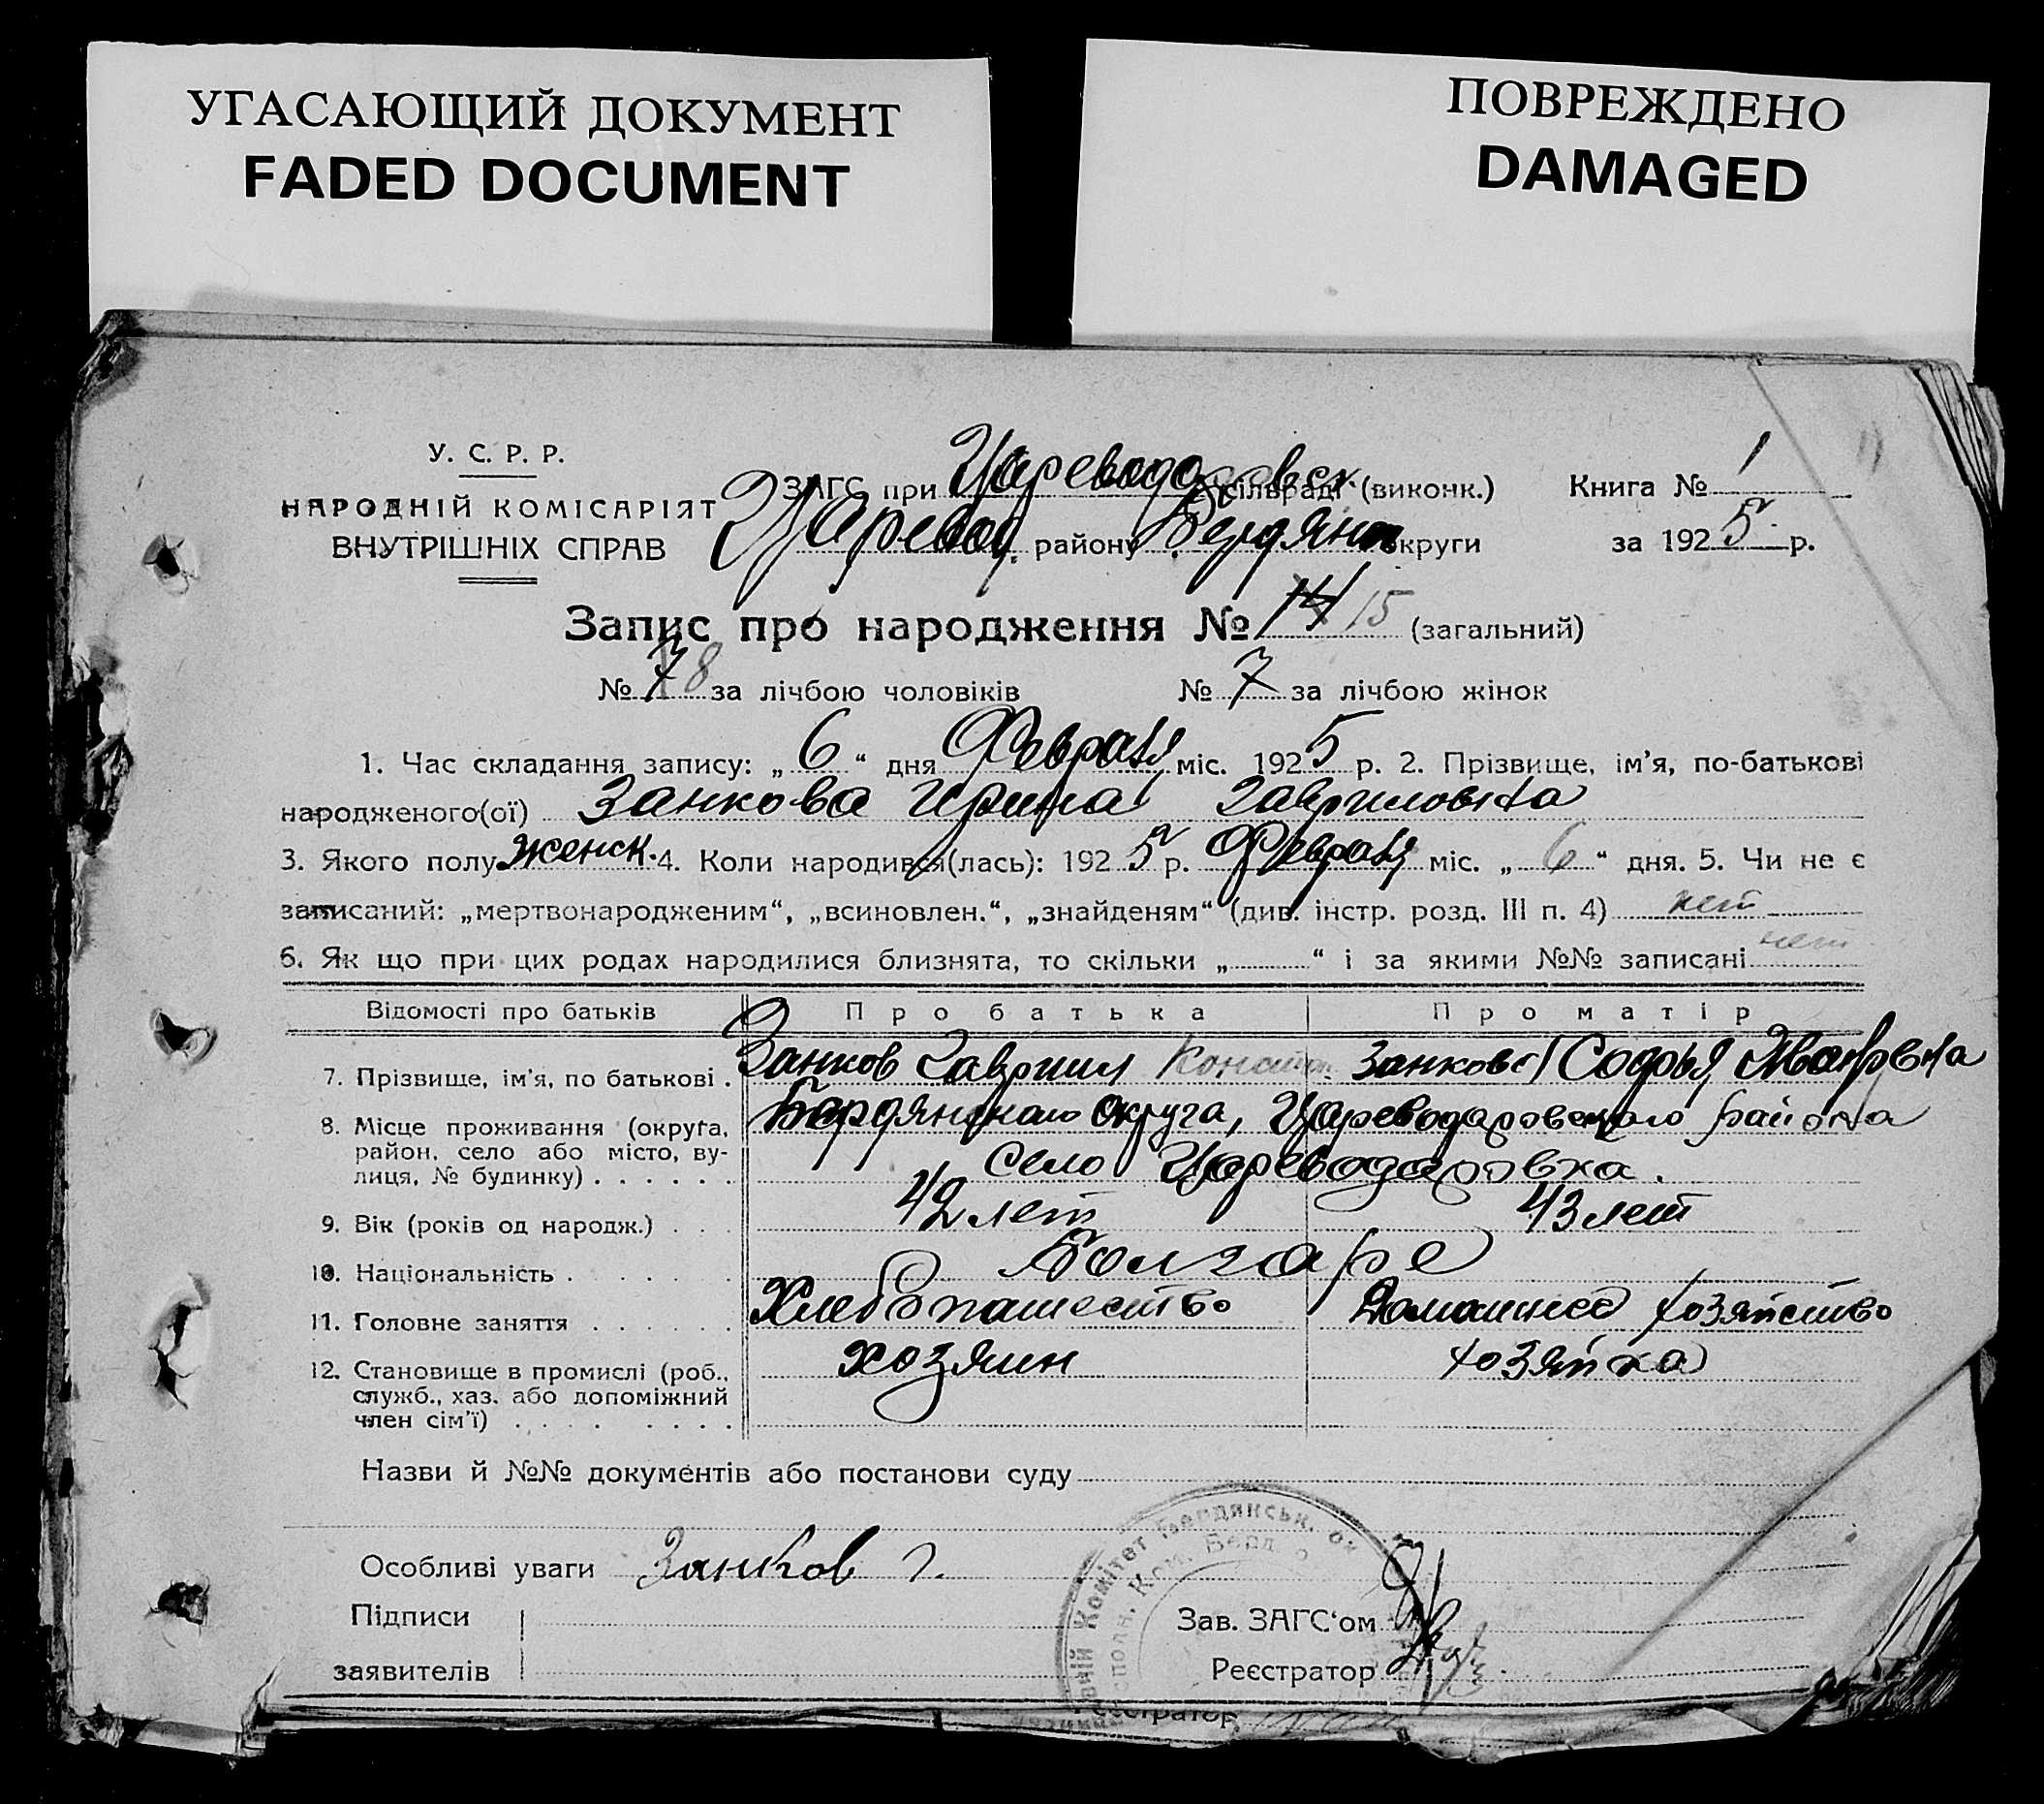 УГАСАЮЩИЙ ДОКУМЕНТ
FADED DOCUMENT
ПОВРЕЖДЕНО
DAMAGED
У. С. Р. Р.
НАРОДНІЙ КОМІСАРІЯТ
ВНУТРІШНІХ СПРАВ
ЗАГС при Цареводаровск. сільраді (виконк.)
Царевод. району Бердянск округи
Книга № 1
за 1925 р.
Запис про народження № 14 15 (загальний)
№ 7 8 за лічбою чоловіків № 7 за лічбою жінок
1. Час складання запису: „ 6 “ дня Февраля міс. 1925 р. 2. Прізвище, ім'я, по-батькові
народженого(ої) Занкова Ирина Гавриловна
3. Якого полу женск. 4. Коли народився(лась): 1925 р. Февраля міс. „ 6 “ дня. 5. Чи не є
записаний: „мертвонародженим“, „всиновлен.“, „знайденям“ (див. інстр. розд. III п. 4) нет
6. Як що при цих родах народилися близнята, то скільки „ “ і за якими №№ записані нет
Відомості про батьків Про батька Про матір
7. Прізвище, ім'я, по батькові . Занков Гаврил Констан. Занкова Софья
8. Місце проживання (округа, Бердянского округа, Цареводаровского района
район, село або місто, ву- село Цареводаровка.
лиця, № будинку) . . . . . .
9. Вік (років од народж.) . . . 42 лет 43 лет
10. Національність . . . . . . Болгаре
11. Головне заняття . . . . . . Хлебопашество Домашнее хозяйство
12. Становище в промислі (роб., хозяин хозяйка
служб., хаз. або допоміжний
член сім'ї) . . . . . . . .
Назви й №№ документів або постанови суду
Особливі уваги Занков Г.
Підписи
заявителів
Зав. ЗАГС'ом
Реєстратор
Комітет Бердянськ. ок
Реєстратор